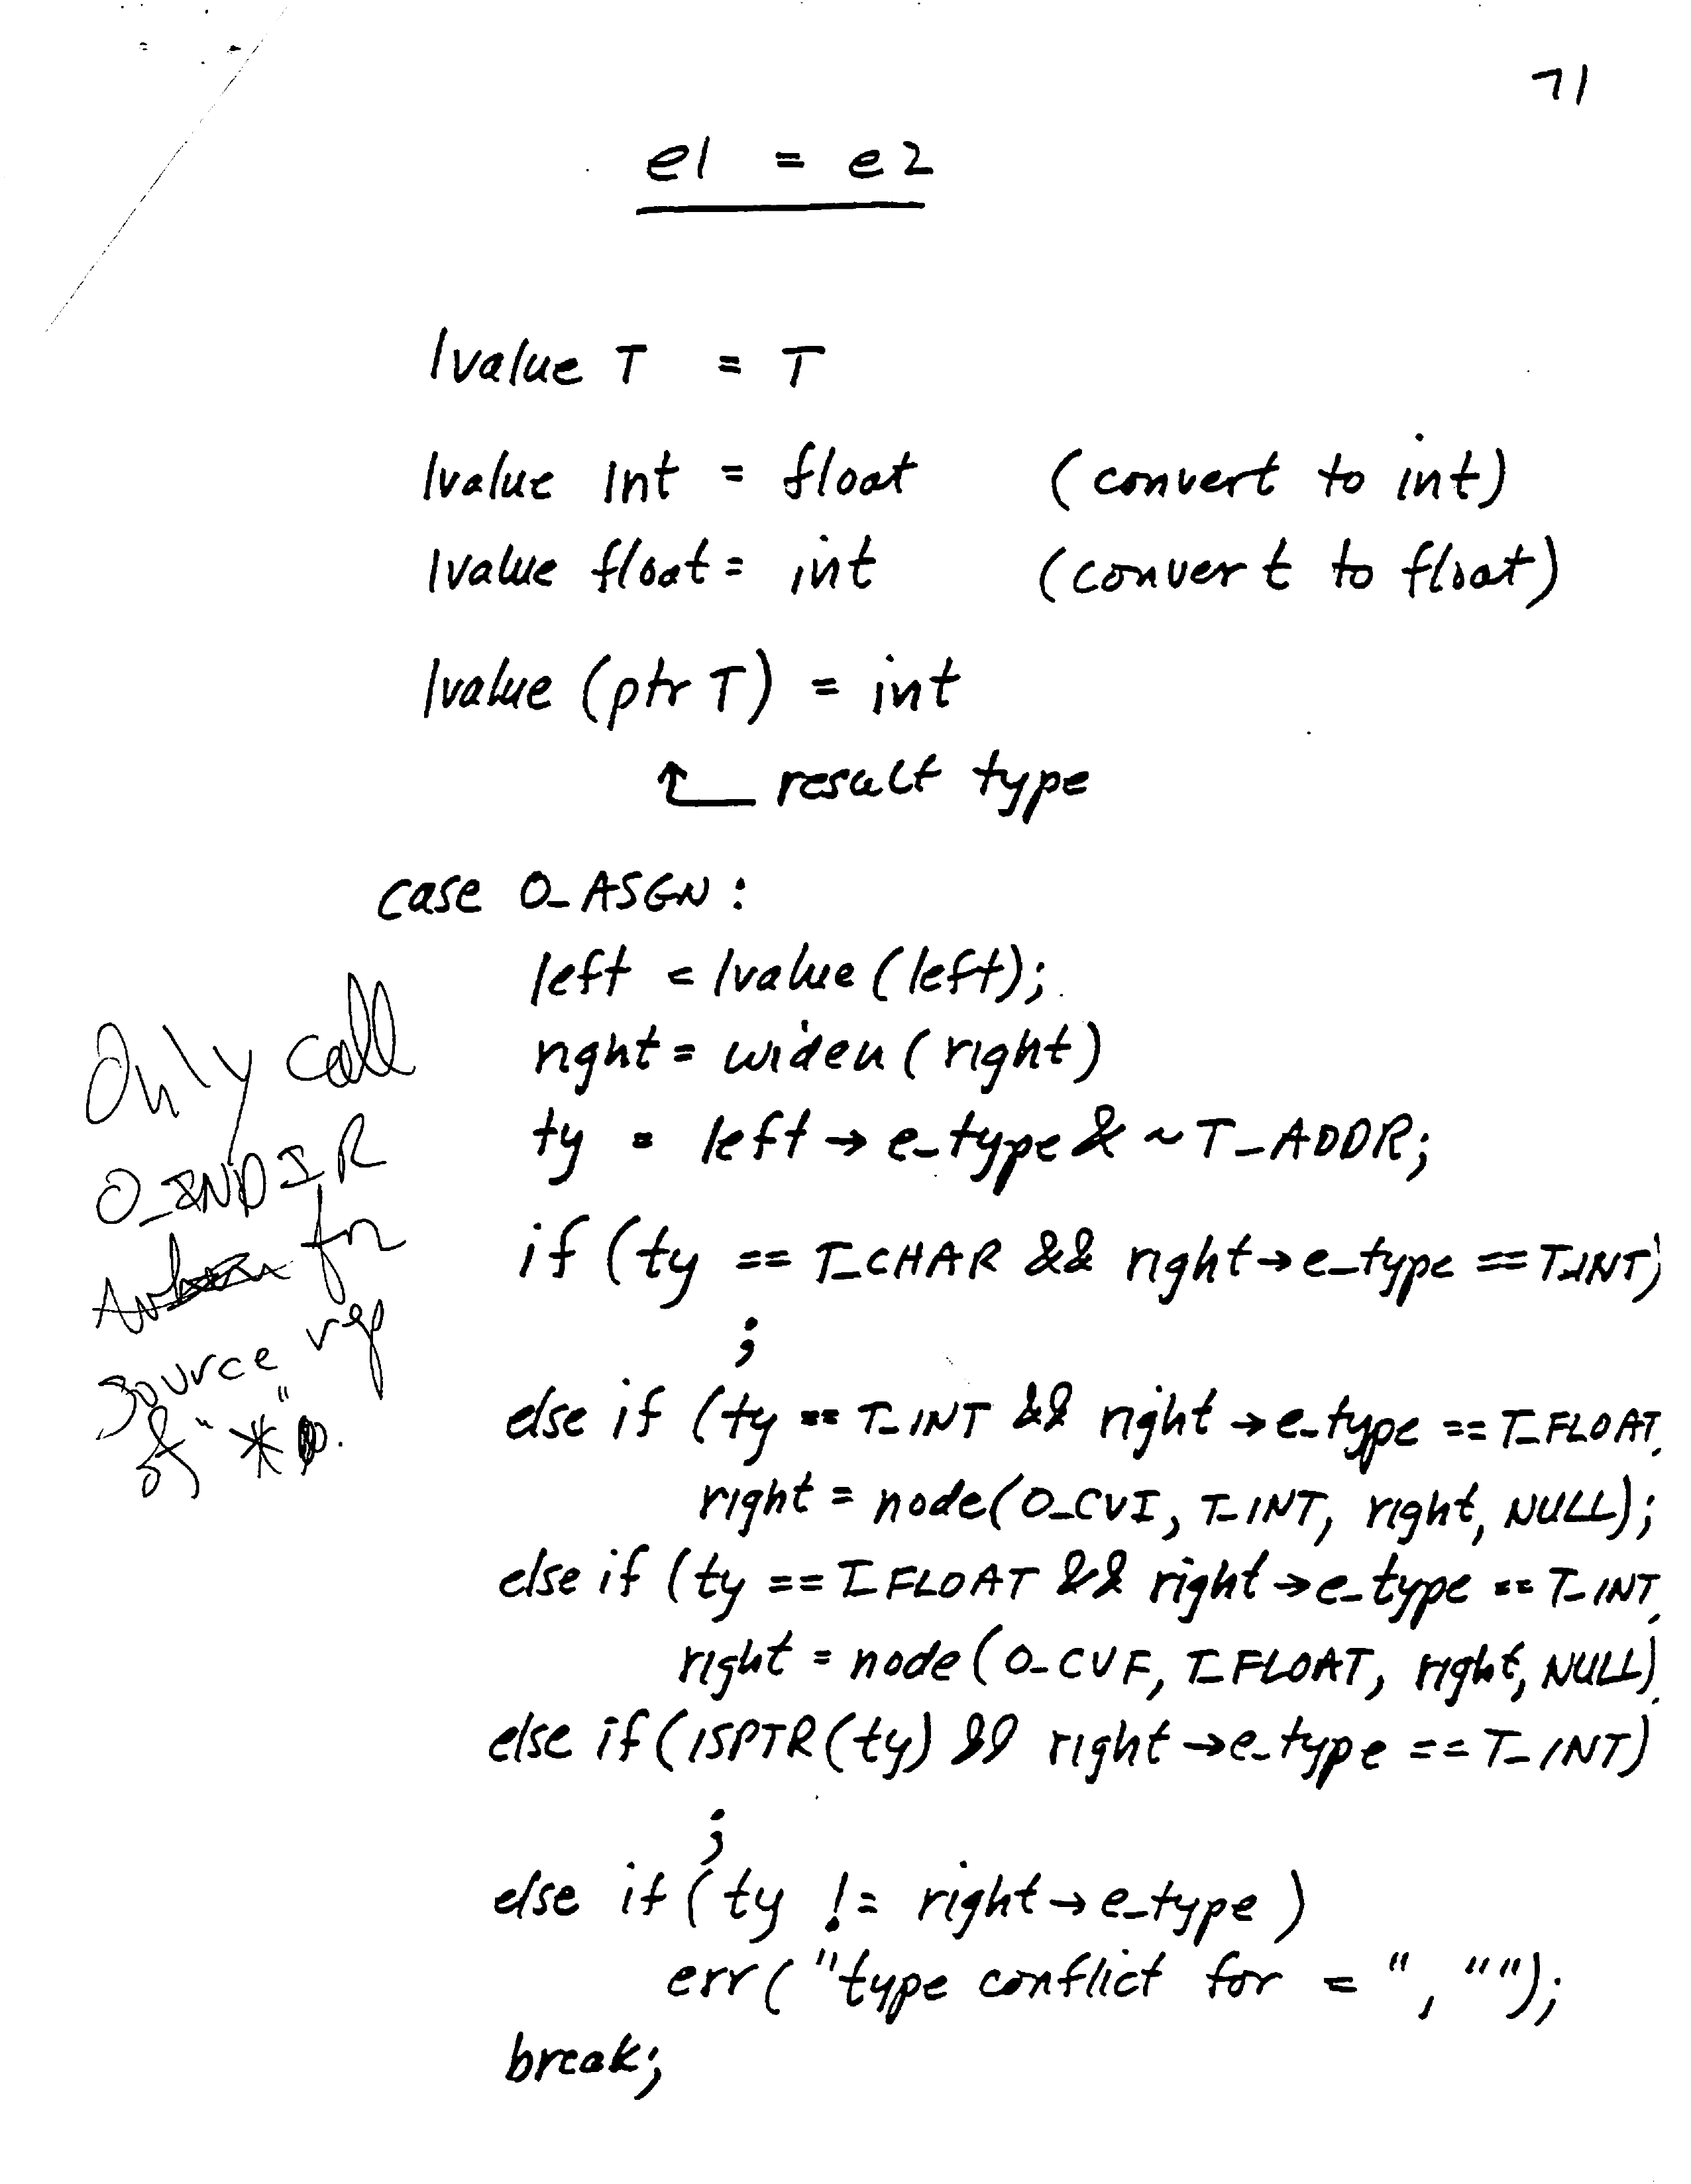 71
e1 = e2
lvalue T = T
lvalue int = float (convert to int)
lvalue float = int (convert to float)
lvalue (ptr T) = int
↑ result type
case O_ASGN:
left = lvalue(left);
right = widen(right)
ty = left → e_type & ~T_ADDR;
if (ty == T_CHAR && right→e_type == T_INT)
;
else if (ty == T_INT && right→e_type == T_FLOAT
right = node(O_CVI, T_INT, right, NULL);
else if (ty == T_FLOAT && right→e_type == T_INT
right = node(O_CVF, T_FLOAT, right, NULL)
else if (ISPTR(ty) && right→e_type == T_INT)
;
else if (ty != right→e_type)
err("type conflict for = ", "");
break;
Only call
O_INDIR
for
source rep
of "*".